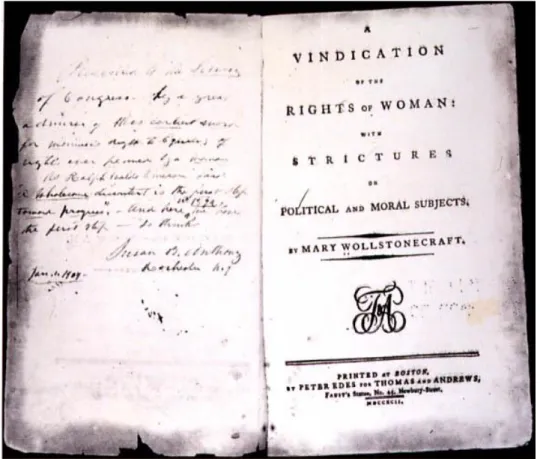 Presented to the Library
of Congress by a great
admirer of this earliest work
for woman's right to Equality of
right ever penned by a woman
As Ralph Waldo Emerson said
"A wholesome discontent is the first step
toward progress" - And here in 1792 we have
the first step - so thinks
Susan B. Anthony
Jan. 1. 1904. Rochester N.Y.
A
VINDICATION
OF THE
RIGHTS OF WOMAN:
WITH
STRICTURES
ON
POLITICAL AND MORAL SUBJECTS,
BY MARY WOLLSTONECRAFT.
T&A
PRINTED AT BOSTON,
BY PETER EDES FOR THOMAS AND ANDREWS,
FAUST'S Statue, No. 45, Newbury-Street,
MDCCXCII.